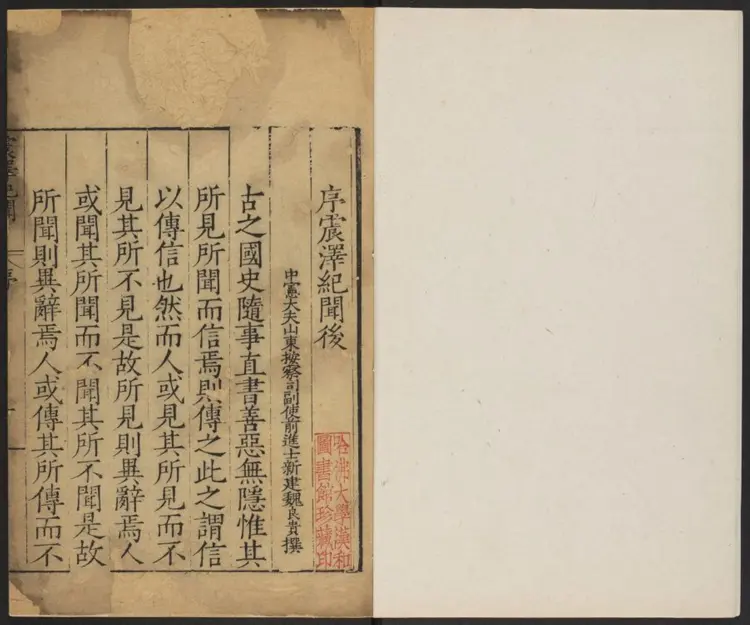 序震澤紀聞後
中憲大夫山東按察司副使前進士新建魏良貴撰
古之國史隨事直書善惡無隱惟其
所見所聞而信焉則傳之此之謂信
以傳信也然而人或見其所見而不
見其所不見是故所見則異辭焉人
或聞其所聞而不聞其所不聞是故
所聞則異辭焉人或傳其所傳而不
哈佛大學漢和
圖書館珍藏印